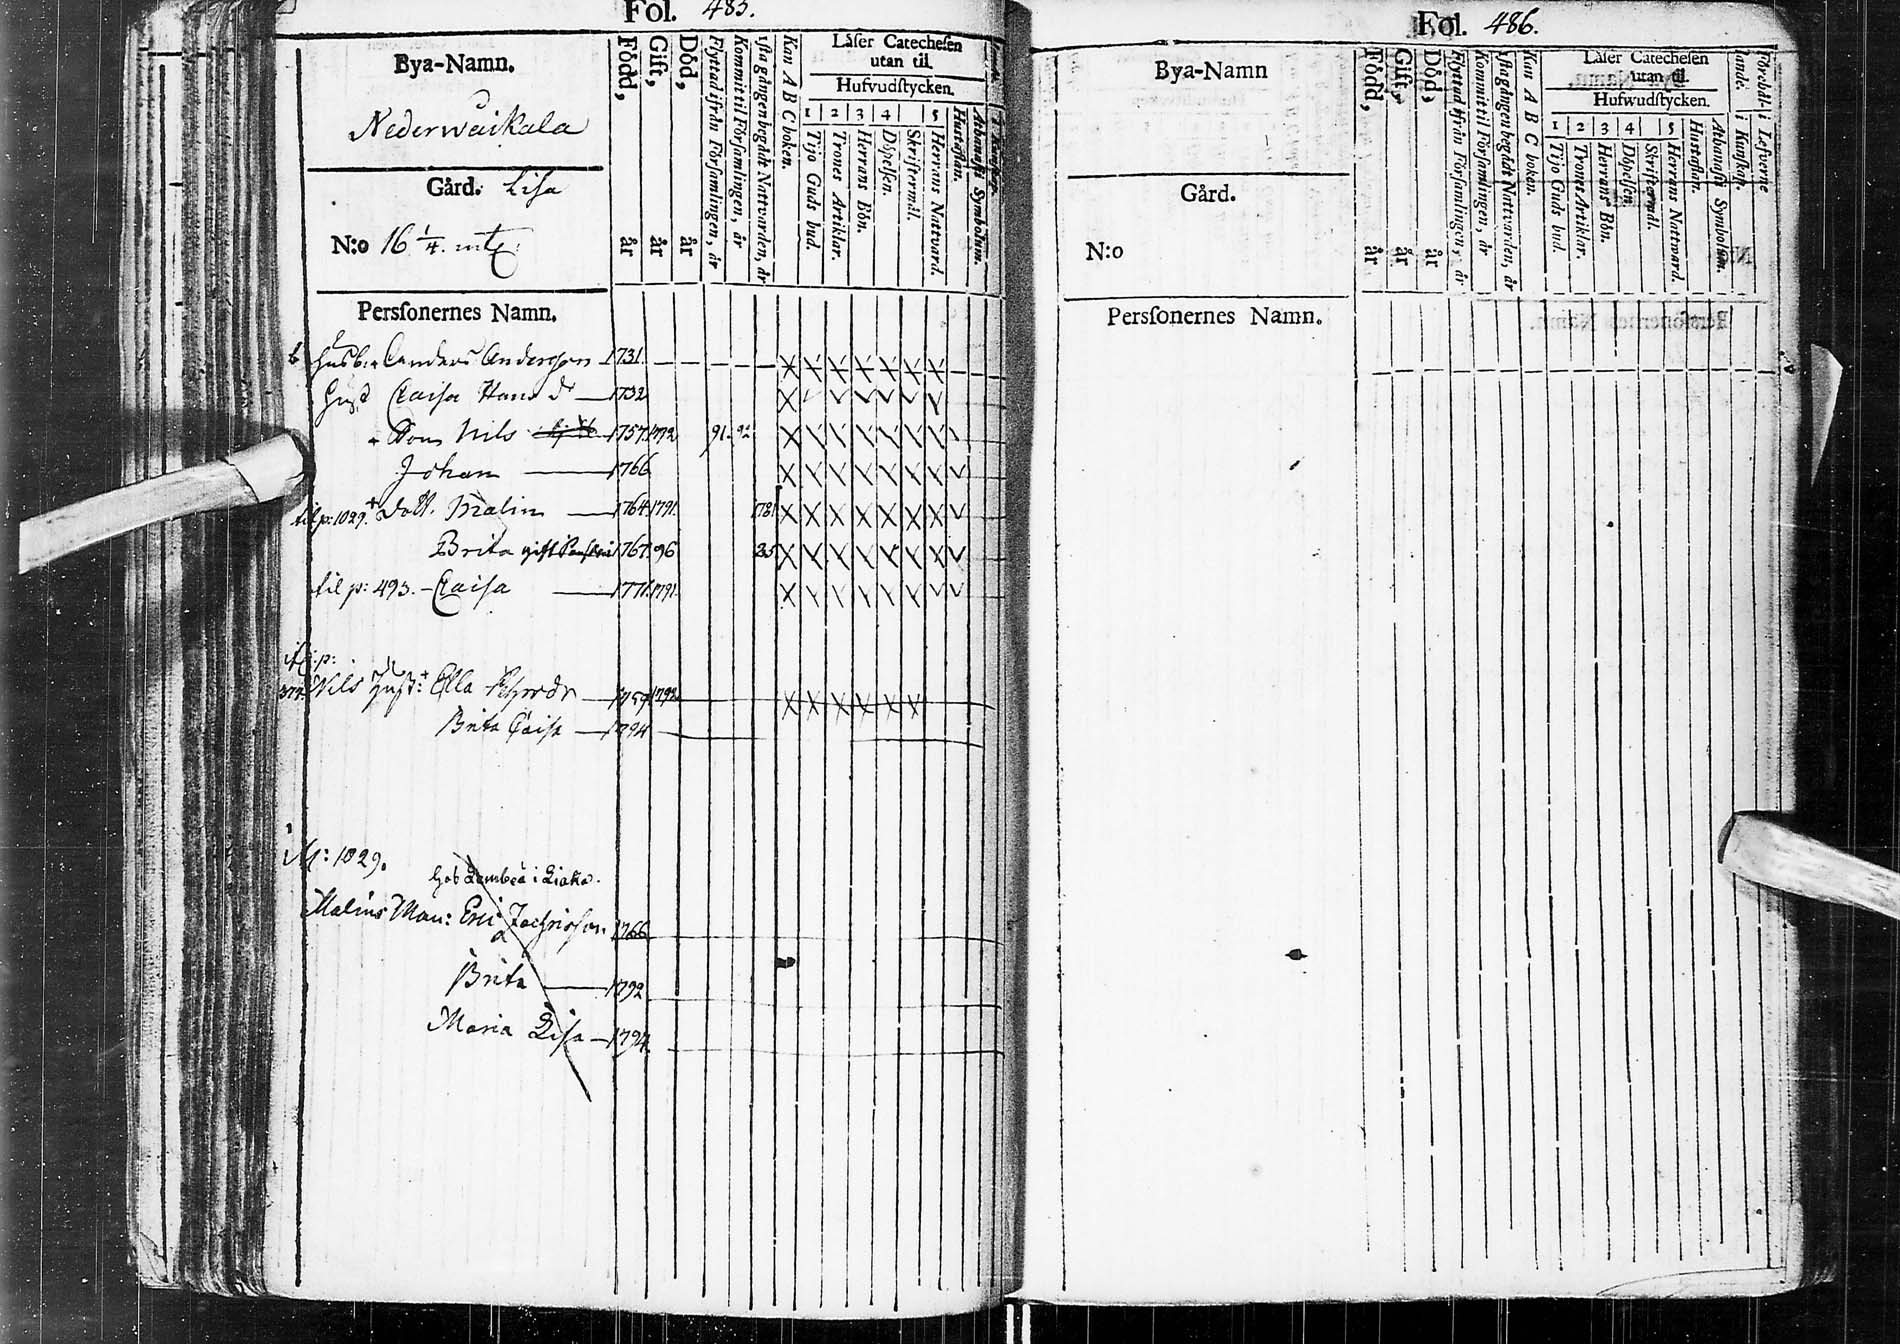 Fol. 485.
Bya-Namn.
Nederwaikala
Gård. Lisa
N:o 16 1/4. mtl:
Född, år
Gift, år
Död, år
Flyttad ifrån Församlingen, år
Kommit til Församlingen, år
1sta gången begådt Nattvarden, år
Kan A B C boken.
Läser Catechesen
utan til.
Hufvudstycken.
1 Tijo Guds bud.
2 Trones Artiklar.
3 Herrans Bön.
4 Döpelsen.
Skriftermål.
5 Herrans Nattvard.
Hustaflan.
Athanasii Symbolum.
Personernes Namn.
Husb: Anders Andersson 1731.
Hust Caisa Hans dr 1732
Son Nils 1757. 1792 91. 92
Johan 1766
til p: 1029. Dott. Malin 1764. 1791. 1781
Brita gift 1767. 96 85
til p: 493. Caisa 1771. 1791.
Nils Hust: Ella 1792
Brita Caisa 1794
p: 1029.
Malins Man: Eric 1766
Brita 1792
Maria Lisa 1794.
Fol. 486.
Bya-Namn
Gård.
N:o
Född, år
Gift, år
Död, år
Flyttad ifrån Församlingen, år
Kommit til Församlingen, år
1sta gången begådt Nattvarden, år
Kan A B C boken.
Läser Catechesen
utan til.
Hufwudstycken.
1 Tijo Guds bud.
2 Trones Artiklar.
3 Herrans Bön.
4 Döpelsen.
Skriftermål.
5 Herrans Nattvard.
Hustaflan.
Athanasii Symbolum.
Personernes Namn.